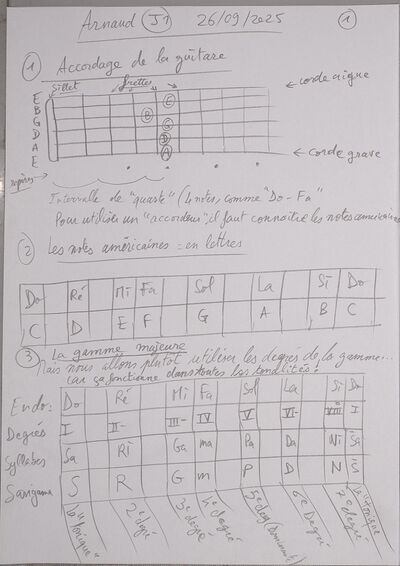 Arnaud J1 26/09/2025 1
1 Accordage de la guitare
Sillet frettes corde aigue
E
B
G
D
A
E
C
B
G
D
A
corde grave
repères
Intervalle de "quarte" (4 notes, comme "Do-Fa"
Pour utiliser un "accordeur", il faut connaître les notes américaines
2 Les notes américaines = en lettres
Do Ré Mi Fa Sol La Si Do
C D E F G A B C
3 La gamme majeure
Mais nous allons plutôt utiliser les degrés de la gamme...
car ça fonctionne dans toutes les tonalités!
Endo: Do Ré Mi Fa Sol La Si Do
Degrés I II- III- IV V VI- VIII I
Syllabes Sa Ri Ga ma Pa Da Ni Sa
Sarigama S R G m P D N S
La "Tonique"
2e degré
3e degré
4e degré
5e deg (Dominante)
6e Degré
7e degré
La "Tonique"